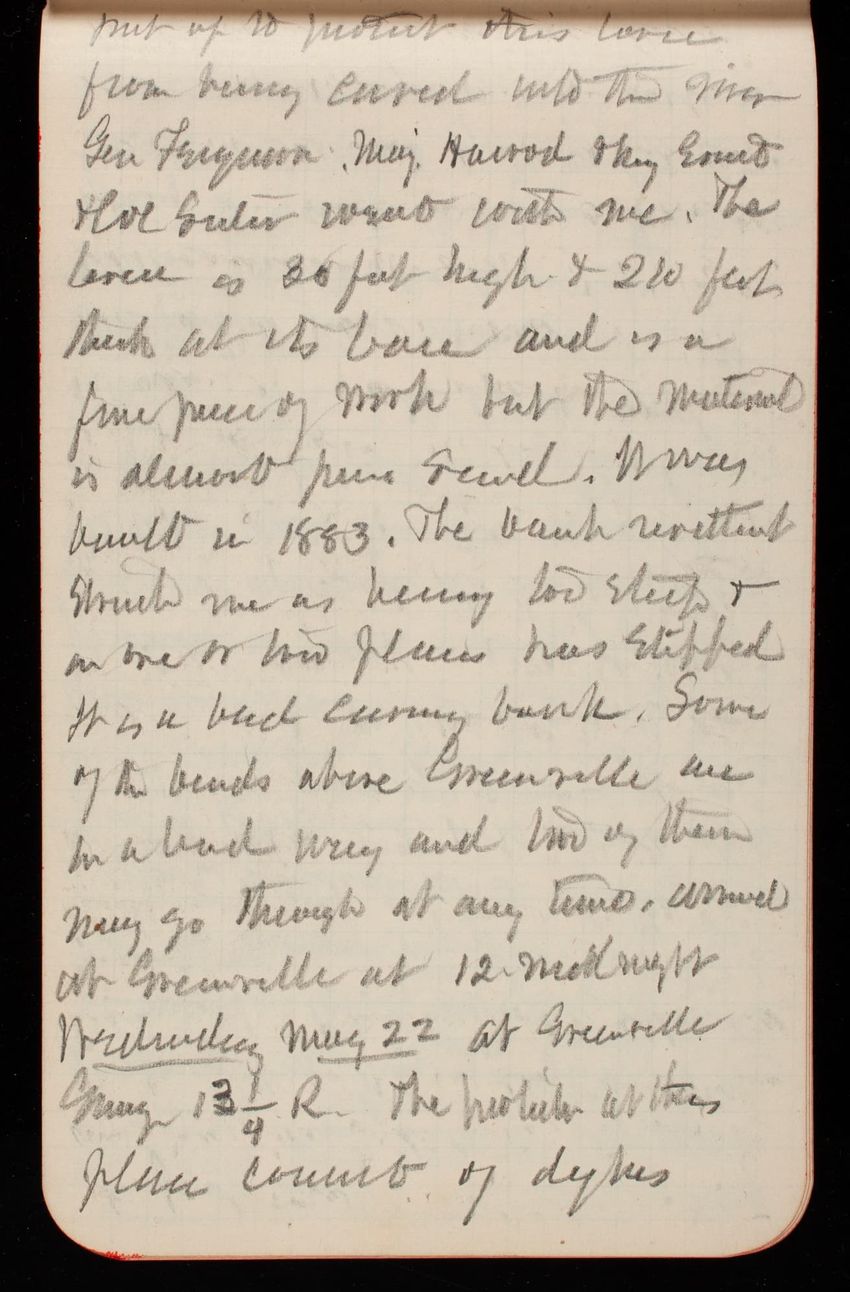 put up to protect this levee
from being caved into the river
Gen Ferguson. Maj. Harrod & Maj Ernst
& Col Suter went with me. The
levee is 30 feet high & 210 feet
thick at its base and is a
fine piece of work but the material
is almost pure sand. It was
built in 1883. The bank revettment
struck me as being too steep &
in one or two places has slipped
It is a bad caving bank. Some
of the bends above Greenville are
in a bad way and two of them
may go through at any time. arrived
at Greenville at 12 midnight
Wednesday May 22 at Greenville
Gauge 13 1/4 R. The protection at this
place consist of dykes